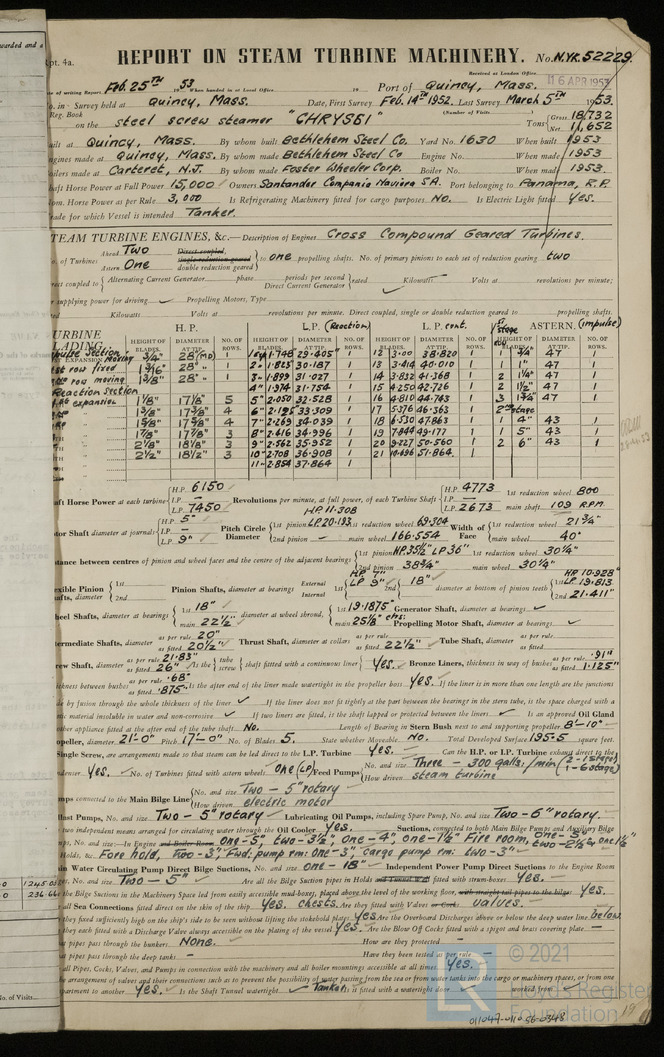 Rpt. 4a.
REPORT ON STEAM TURBINE MACHINERY. No. N.YK. 52229.
Received at London Office 16 APR 1953
Date of writing Report Feb. 25TH 1953 When handed in at Local Office 19 Port of Quincy, Mass.
No. in Survey held at Quincy, Mass. Date, First Survey Feb. 14TH 1952. Last Survey March 5TH 1953.
Reg. Book (Number of Visits )
on the steel screw steamer "CHRYSSI" Tons Gross 18,732 Net 11,652
Built at Quincy, Mass. By whom built Bethlehem Steel Co. Yard No. 1630 When built 1953
Engines made at Quincy, Mass. By whom made Bethlehem Steel Co Engine No. When made 1953
Boilers made at Carteret, N.J. By whom made Foster Wheeler Corp. Boiler No. When made 1953.
Shaft Horse Power at Full Power 15,000 Owners Santander Compania Naviera S.A. Port belonging to Panama, R.P.
Nom. Horse Power as per Rule 3,000 Is Refrigerating Machinery fitted for cargo purposes No. Is Electric Light fitted Yes.
Trade for which Vessel is intended Tanker.
STEAM TURBINE ENGINES, &c.—Description of Engines Cross Compound Geared Turbines.
No. of Turbines Ahead Two Astern One Direct coupled, single reduction geared double reduction geared to one propelling shafts. No. of primary pinions to each set of reduction gearing two
direct coupled to Alternating Current Generator phase periods per second Direct Current Generator rated Kilowatts Volts at revolutions per minute;
for supplying power for driving Propelling Motors, Type
rated Kilowatts Volts at revolutions per minute. Direct coupled, single or double reduction geared to propelling shafts.
TURBINE BLADING. H. P. L.P. (Reaction) L. P. cont. 1st stage ASTERN. (impulse)
HEIGHT OF BLADES. DIAMETER AT TIP. NO. OF ROWS.
Impulse Section
1st row fixed 1 3/16" 28" 1
Reaction Section
2" 1.825 30.187 1 13 3.414 40.010 1 1 1" 47 1
3" 1.899 31.027 1 14 3.832 41.368 1 2 1 1/4" 47 1
4" 1.974 31.754 1 15 4.250 42.726 1 2 1 1/2" 47 1
1 1/8" 17 1/8" 5 5" 2.050 32.528 1 16 4.810 44.743 1 3 1 3/4" 47 1
1 3/8" 17 3/8" 4 6" 2.195 33.309 1 17 5.376 46.363 1 2nd stage
1 5/8" 17 5/8" 4 7" 2.269 34.039 1 18 6.530 47.863 1 1 4" 43 1
1 7/8" 17 7/8" 3 8" 2.416 34.996 1 19 7.844 49.177 1 1 5" 43 1
2 1/8" 18 1/8" 3 9" 2.562 35.952 1 20 9.227 50.560 1 2 6" 43 1
2 1/2" 18 1/2" 3 10" 2.708 36.908 1 21 10.696 51.864 1
11" 2.854 37.864 1
Shaft Horse Power at each turbine H.P. 6150 I.P. — L.P. 7450 Revolutions per minute, at full power, of each Turbine Shaft H.P. 4773 I.P. — L.P. 2673 1st reduction wheel 800 main shaft 109 RPM
Rotor Shaft diameter at journals H.P. 5" I.P. — L.P. 9" Pitch Circle Diameter HP.11.308 1st pinion LP.20.193 1st reduction wheel 69.304 2nd pinion main wheel 166.554 Width of Face 1st reduction wheel 21 3/4" main wheel 40"
Distance between centres of pinion and wheel faces and the centre of the adjacent bearings 1st pinion HP.35 1/2" LP 36" 2nd pinion 38 3/4" 1st reduction wheel 30 1/4" main wheel 30 1/4"
Flexible Pinion Shafts, diameter 1st 2nd Pinion Shafts, diameter at bearings External Internal 1st HP. 7" LP 9" 2nd 18" diameter at bottom of pinion teeth 1st HP 10.928" LP. 19.813 2nd 21.411"
Wheel Shafts, diameter at bearings 1st 18" main 22 1/2" diameter at wheel shroud, 1st 19.1875" main 25 1/8" Generator Shaft, diameter at bearings Propelling Motor Shaft, diameter at bearings
Intermediate Shafts, diameter as per rule 20" as fitted 20 1/2" Thrust Shaft, diameter at collars as per rule as fitted 22 1/2" Tube Shaft, diameter as per rule as fitted
Screw Shaft, diameter as per rule 21.83" as fitted 26" Is the tube screw shaft fitted with a continuous liner Yes. Bronze Liners, thickness in way of bushes as per rule .91" as fitted 1.125"
Thickness between bushes as per rule .68" as fitted .875" Is the after end of the liner made watertight in the propeller boss Yes. If the liner is in more than one length are the junctions
made by fusion through the whole thickness of the liner If the liner does not fit tightly at the part between the bearings in the stern tube, is the space charged with a
plastic material insoluble in water and non-corrosive If two liners are fitted, is the shaft lapped or protected between the liners Is an approved Oil Gland
or other appliance fitted at the after end of the tube shaft No. Length of Bearing in Stern Bush next to and supporting propeller 8'-10"
Propeller, diameter 21'-0" Pitch 17'-0" No. of Blades 5. State whether Moveable No. Total Developed Surface 195.5 square feet.
If Single Screw, are arrangements made so that steam can be led direct to the L.P. Turbine Yes. Can the H.P. or I.P. Turbine exhaust direct to the
Condenser Yes. No. of Turbines fitted with astern wheels One (LP) Feed Pumps No. and size Three – 300 galls./min (2-1 stage, 1-6 stage) How driven steam turbine
Pumps connected to the Main Bilge Line No. and size Two – 5" rotary How driven electric motor
Ballast Pumps, No. and size Two – 5" rotary Lubricating Oil Pumps, including Spare Pump, No. and size Two – 6" rotary.
Are two independent means arranged for circulating water through the Oil Cooler Yes. Suctions, connected to both Main Bilge Pumps and Auxiliary Bilge
Pumps, No. and size:—In Engine and Boiler Room One-5", two-3 1/2", One-4", one-1 1/2" Fire room, one-5" two-2 1/2" & one 1 1/2"
In Holds, &c. Fore hold, two-3", Fwd. pump rm: One-3", cargo pump rm: two-3"
Main Water Circulating Pump Direct Bilge Suctions, No. and size One – 18" Independent Power Pump Direct Suctions to the Engine Room
Bilges, No. and size Two – 5" Are all the Bilge Suction pipes in Holds and Tunnel Well fitted with strum-boxes Yes.
Are the Bilge Suctions in the Machinery Space led from easily accessible mud-boxes, placed above the level of the working floor, with straight tail pipes to the bilges Yes.
Are all Sea Connections fitted direct on the skin of the ship Yes. chests. Are they fitted with Valves or Cocks valves.
Are they fixed sufficiently high on the ship's side to be seen without lifting the stokehold plates Yes. Are the Overboard Discharges above or below the deep water line below.
Are they each fitted with a Discharge Valve always accessible on the plating of the vessel Yes. Are the Blow Off Cocks fitted with a spigot and brass covering plate —
What pipes pass through the bunkers None. How are they protected —
What pipes pass through the deep tanks — Have they been tested as per rule —
Are all Pipes, Cocks, Valves, and Pumps in connection with the machinery and all boiler mountings accessible at all times Yes.
Is the arrangement of valves and their connections such as to prevent the possibility of water passing from the sea or from water tanks into the cargo or machinery spaces, or from one
compartment to another Yes. Is the Shaft Tunnel watertight Tanker. Is it fitted with a watertight door worked from
© 2021
Lloyd's Register
Foundation
011047-011056-0348